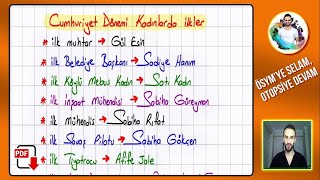 Cumhuriyet Dönemi Kadınlarda ilkler
* ilk muhtar → Gül Esin
* ilk Belediye Başkanı → Sadiye Hanım
* ilk Köylü Mebus Kadın → Satı Kadın
* ilk inşaat Mühendisi → Sabiha Güreyman
* ilk mühendis → Sabiha Rıfat
* ilk Savaş Pilotu → Sabiha Gökçen
* ilk Tiyatrocu → Afife Jale
PDF
ÖSYM'YE SELAM,
OTOPSİYE DEVAM